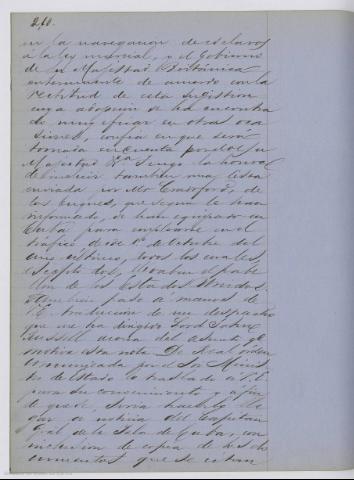 260.
en la navegacion de esclavos
á la ley marcial, y el Gobierno
de su Majestad Británica
enteramente de acuerdo con la
rectitud de esta
cuya adopcion se ha encontra
do muy eficaz en otras oca
siones, confia en que será
tomada en cuenta por el de su
Majestad Tengo la honra
de incluir tambien una lista
enviada por Mr Crawford, de
los buques, que segun le han
informado, se han equipado en
Cuba para emplearse en el
tráfico desde 1º de Octubre del
año último, todos los cuales,
escepto dos, llevaban el pabe
llon de los Estados Unidos.
Tambien paso á manos de
V.E. traduccion de un despacho
que me ha dirigido Lord John
Russell acerca del asunto qe
motiva esta nota. De Real orden
comunicada por el Sor Minis
tro de Estado lo traslado á V.E.
para su conocimiento y á fin
de que se sirva hacerlo lle
gar á noticia del Capitan
Gral de la Isla de Cuba, con
inclusion de copia de los do
cumentos que se citan